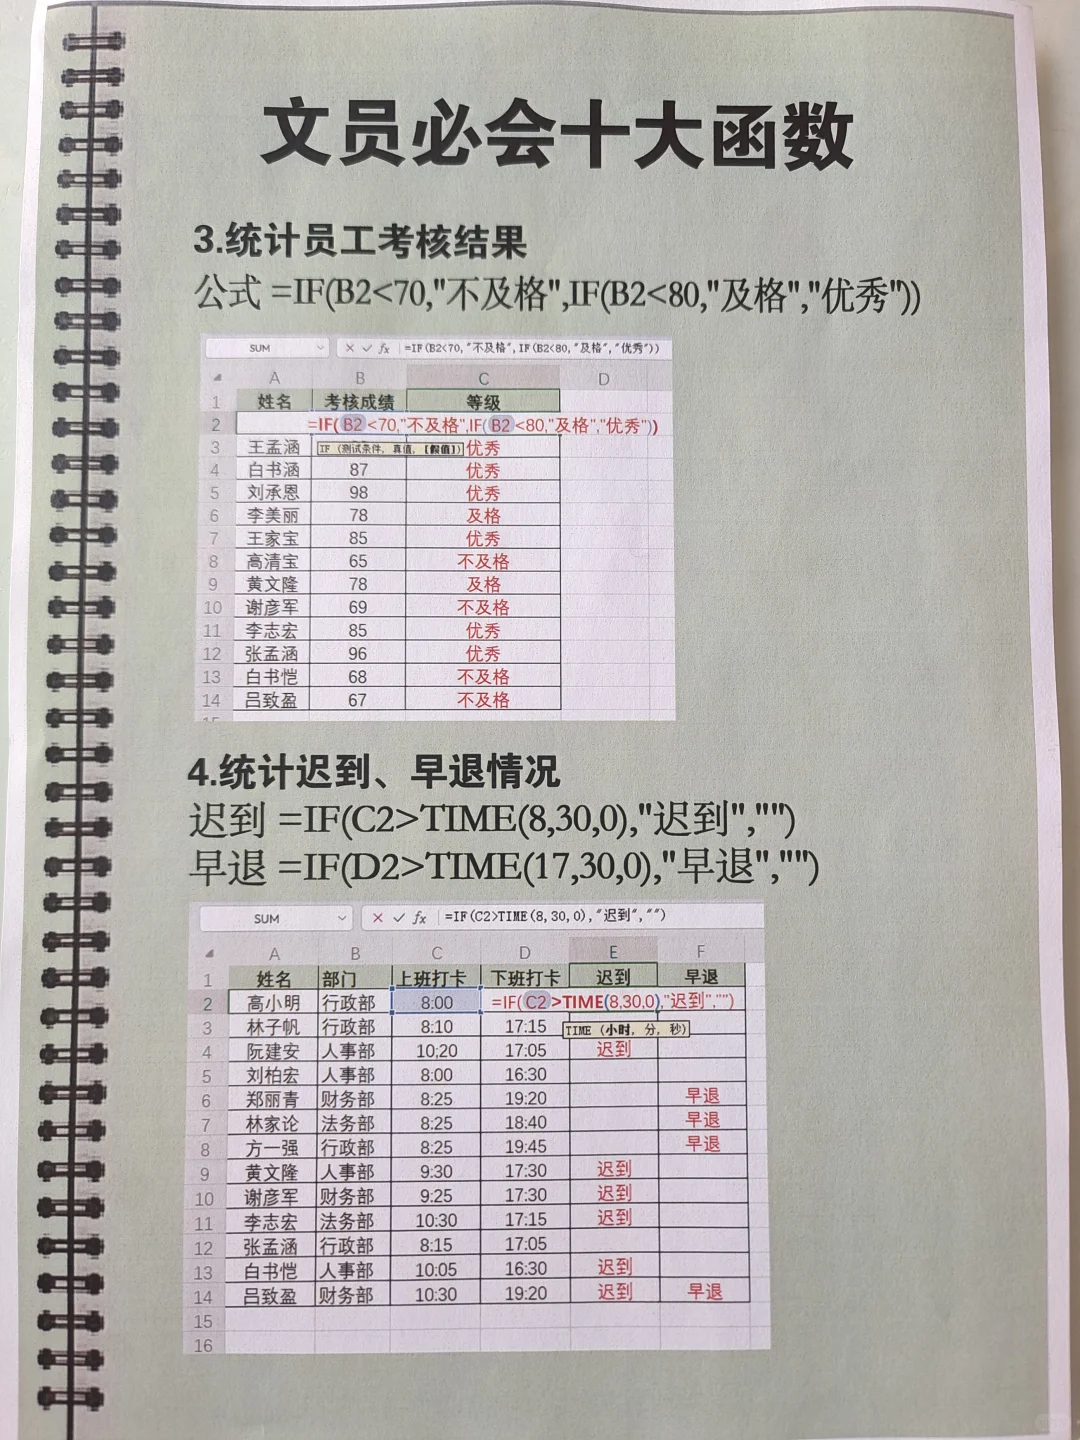 文员必会十大函数
3.统计员工考核结果
公式 =IF(B2<70,"不及格",IF(B2<80,"及格","优秀"))
SUM =IF(B2<70,"不及格",IF(B2<80,"及格","优秀"))
A B C D
1 姓名 考核成绩 等级
2 =IF(B2<70,"不及格",IF(B2<80,"及格","优秀"))
3 王孟涵 IF (测试条件, 真值, [假值]) 优秀
4 白书涵 87 优秀
5 刘承恩 98 优秀
6 李美丽 78 及格
7 王家宝 85 优秀
8 高清宝 65 不及格
9 黄文隆 78 及格
10 谢彦军 69 不及格
11 李志宏 85 优秀
12 张孟涵 96 优秀
13 白书恺 68 不及格
14 吕致盈 67 不及格
4.统计迟到、早退情况
迟到 =IF(C2>TIME(8,30,0),"迟到","")
早退 =IF(D2>TIME(17,30,0),"早退","")
SUM fx =IF(C2>TIME(8,30,0),"迟到","")
A B C D E F
1 姓名 部门 上班打卡 下班打卡 迟到 早退
2 高小明 行政部 8:00 =IF(C2>TIME(8,30,0),"迟到","")
3 林子帆 行政部 8:10 17:15 TIME (小时, 分, 秒)
4 阮建安 人事部 10;20 17:05 迟到
5 刘柏宏 人事部 8:00 16:30
6 郑丽青 财务部 8:25 19:20 早退
7 林家论 法务部 8:25 18:40 早退
8 方一强 行政部 8:25 19:45 早退
9 黄文隆 人事部 9:30 17:30 迟到
10 谢彦军 财务部 9:25 17:30 迟到
11 李志宏 法务部 10:30 17:15 迟到
12 张孟涵 行政部 8:15 17:05
13 白书恺 人事部 10:05 16:30 迟到
14 吕致盈 财务部 10:30 19:20 迟到 早退
15
16